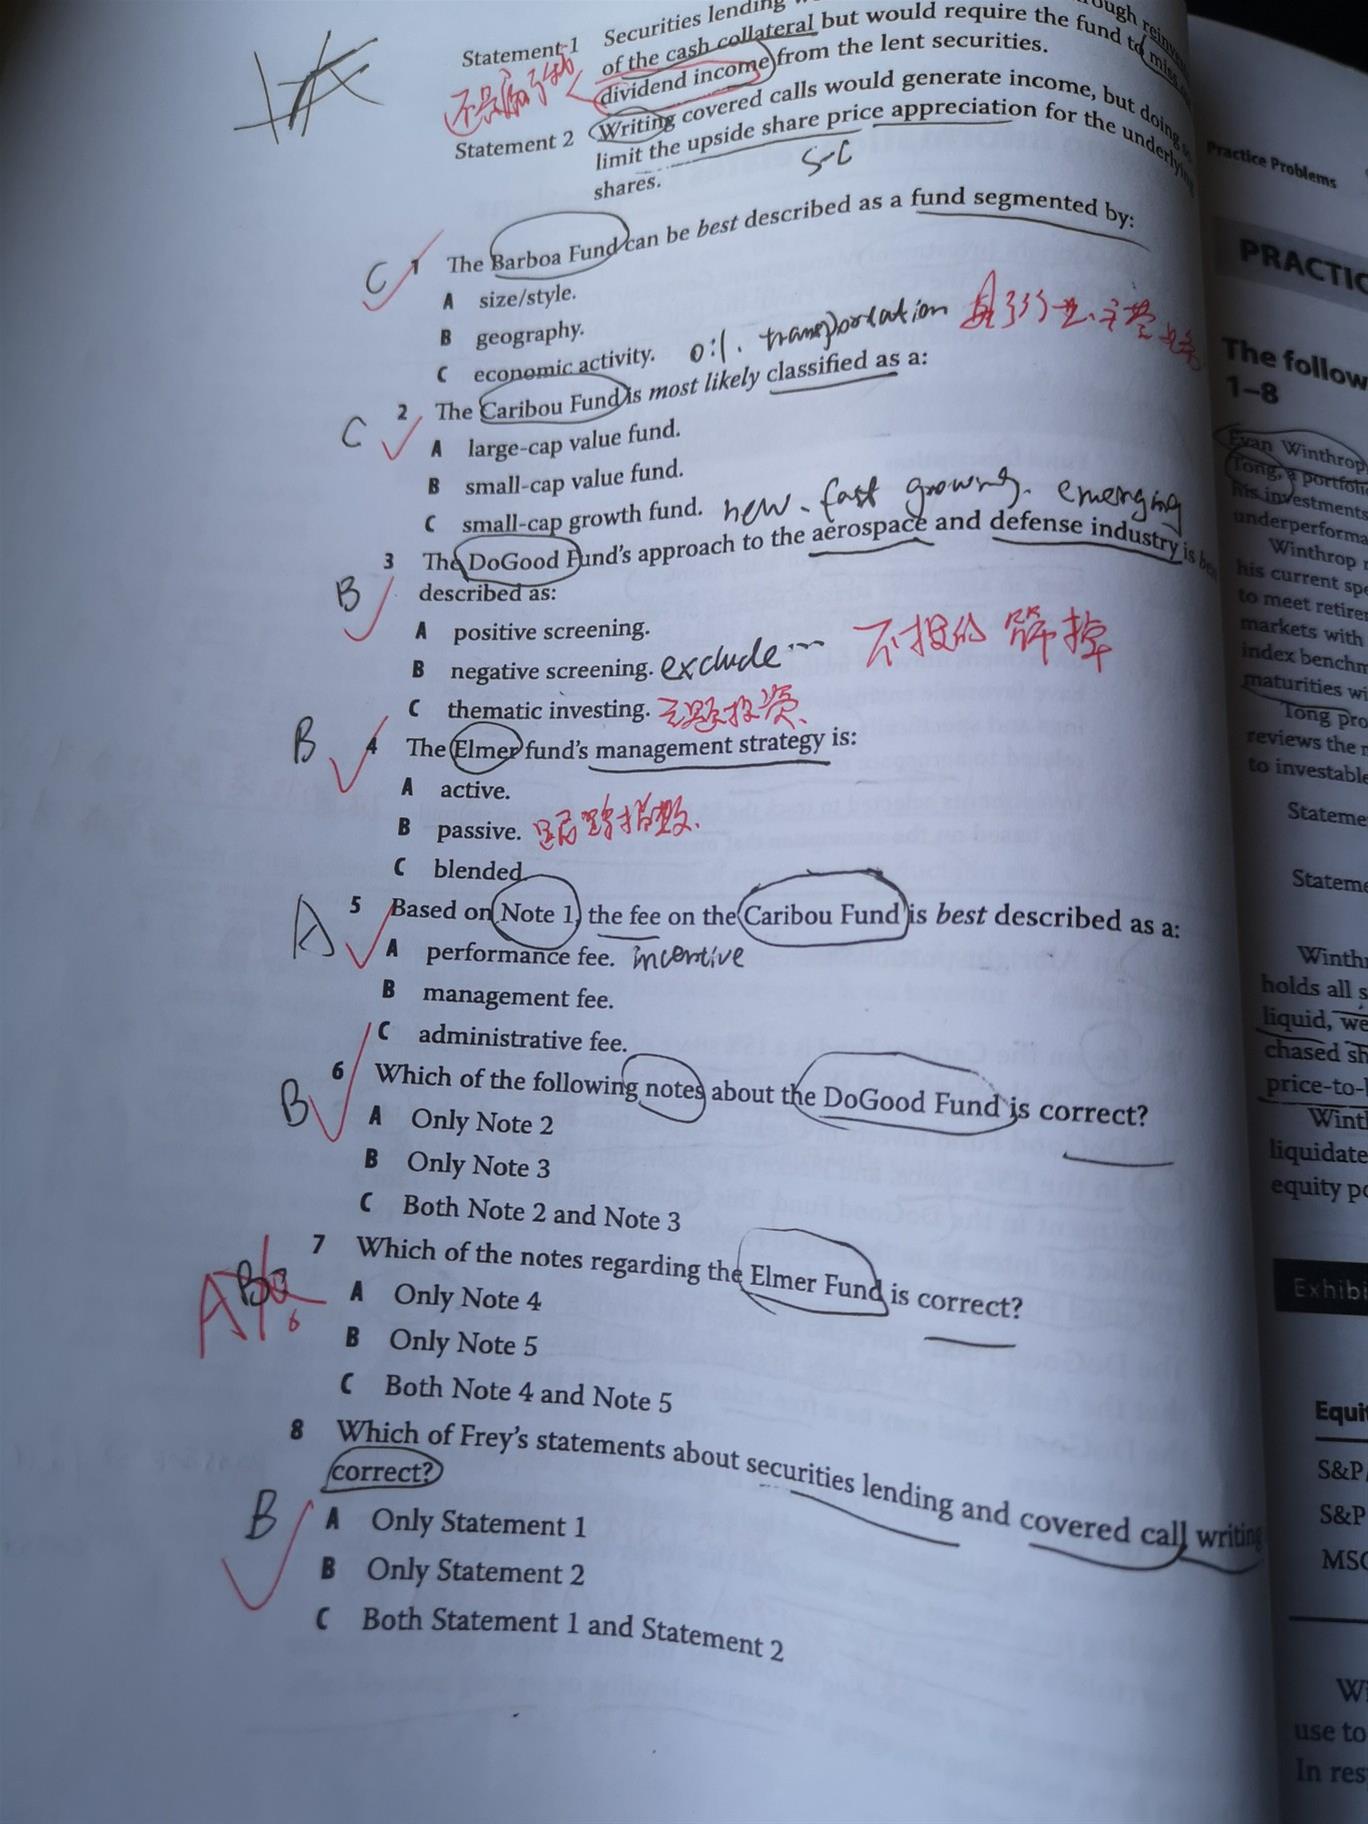 Statement 1 Securities lending
of the cash collateral but would require the fund to miss
dividend income from the lent securities.
Statement 2 Writing covered calls would generate income, but doing so
limit the upside share price appreciation for the underlying
shares.
S-C
C 1 The Barboa Fund can be best described as a fund segmented by:
A size/style.
B geography.
C economic activity. oil. transportation
C 2 The Caribou Fund is most likely classified as a:
A large-cap value fund.
B small-cap value fund.
C small-cap growth fund. new. fast growing. emerging
B 3 The DoGood Fund's approach to the aerospace and defense industry is best
described as:
A positive screening.
B negative screening. exclude... 不投的 筛掉
C thematic investing. 主题投资
B 4 The Elmer fund's management strategy is:
A active.
B passive. 跟踪指数.
C blended.
A 5 Based on Note 1, the fee on the Caribou Fund is best described as a:
A performance fee. incentive
B management fee.
C administrative fee.
B 6 Which of the following notes about the DoGood Fund is correct?
A Only Note 2
B Only Note 3
C Both Note 2 and Note 3
A 7 Which of the notes regarding the Elmer Fund is correct?
A Only Note 4
B Only Note 5
C Both Note 4 and Note 5
8 Which of Frey's statements about securities lending and covered call writing
correct?
B A Only Statement 1
B Only Statement 2
C Both Statement 1 and Statement 2
Practice Problems
PRACTIC
The follow
1–8
Evan Winthrop
Tong, a portfoli
his investments
underperforma
Winthrop
his current spe
to meet retire
markets with
index benchm
maturities wi
Tong pro
reviews the
to investable
Stateme
Stateme
Winth
holds all s
liquid, we
chased sh
price-to-
Wint
liquidate
equity po
Exhibi
Equit
S&P
S&P
MSC
W
use to
In res